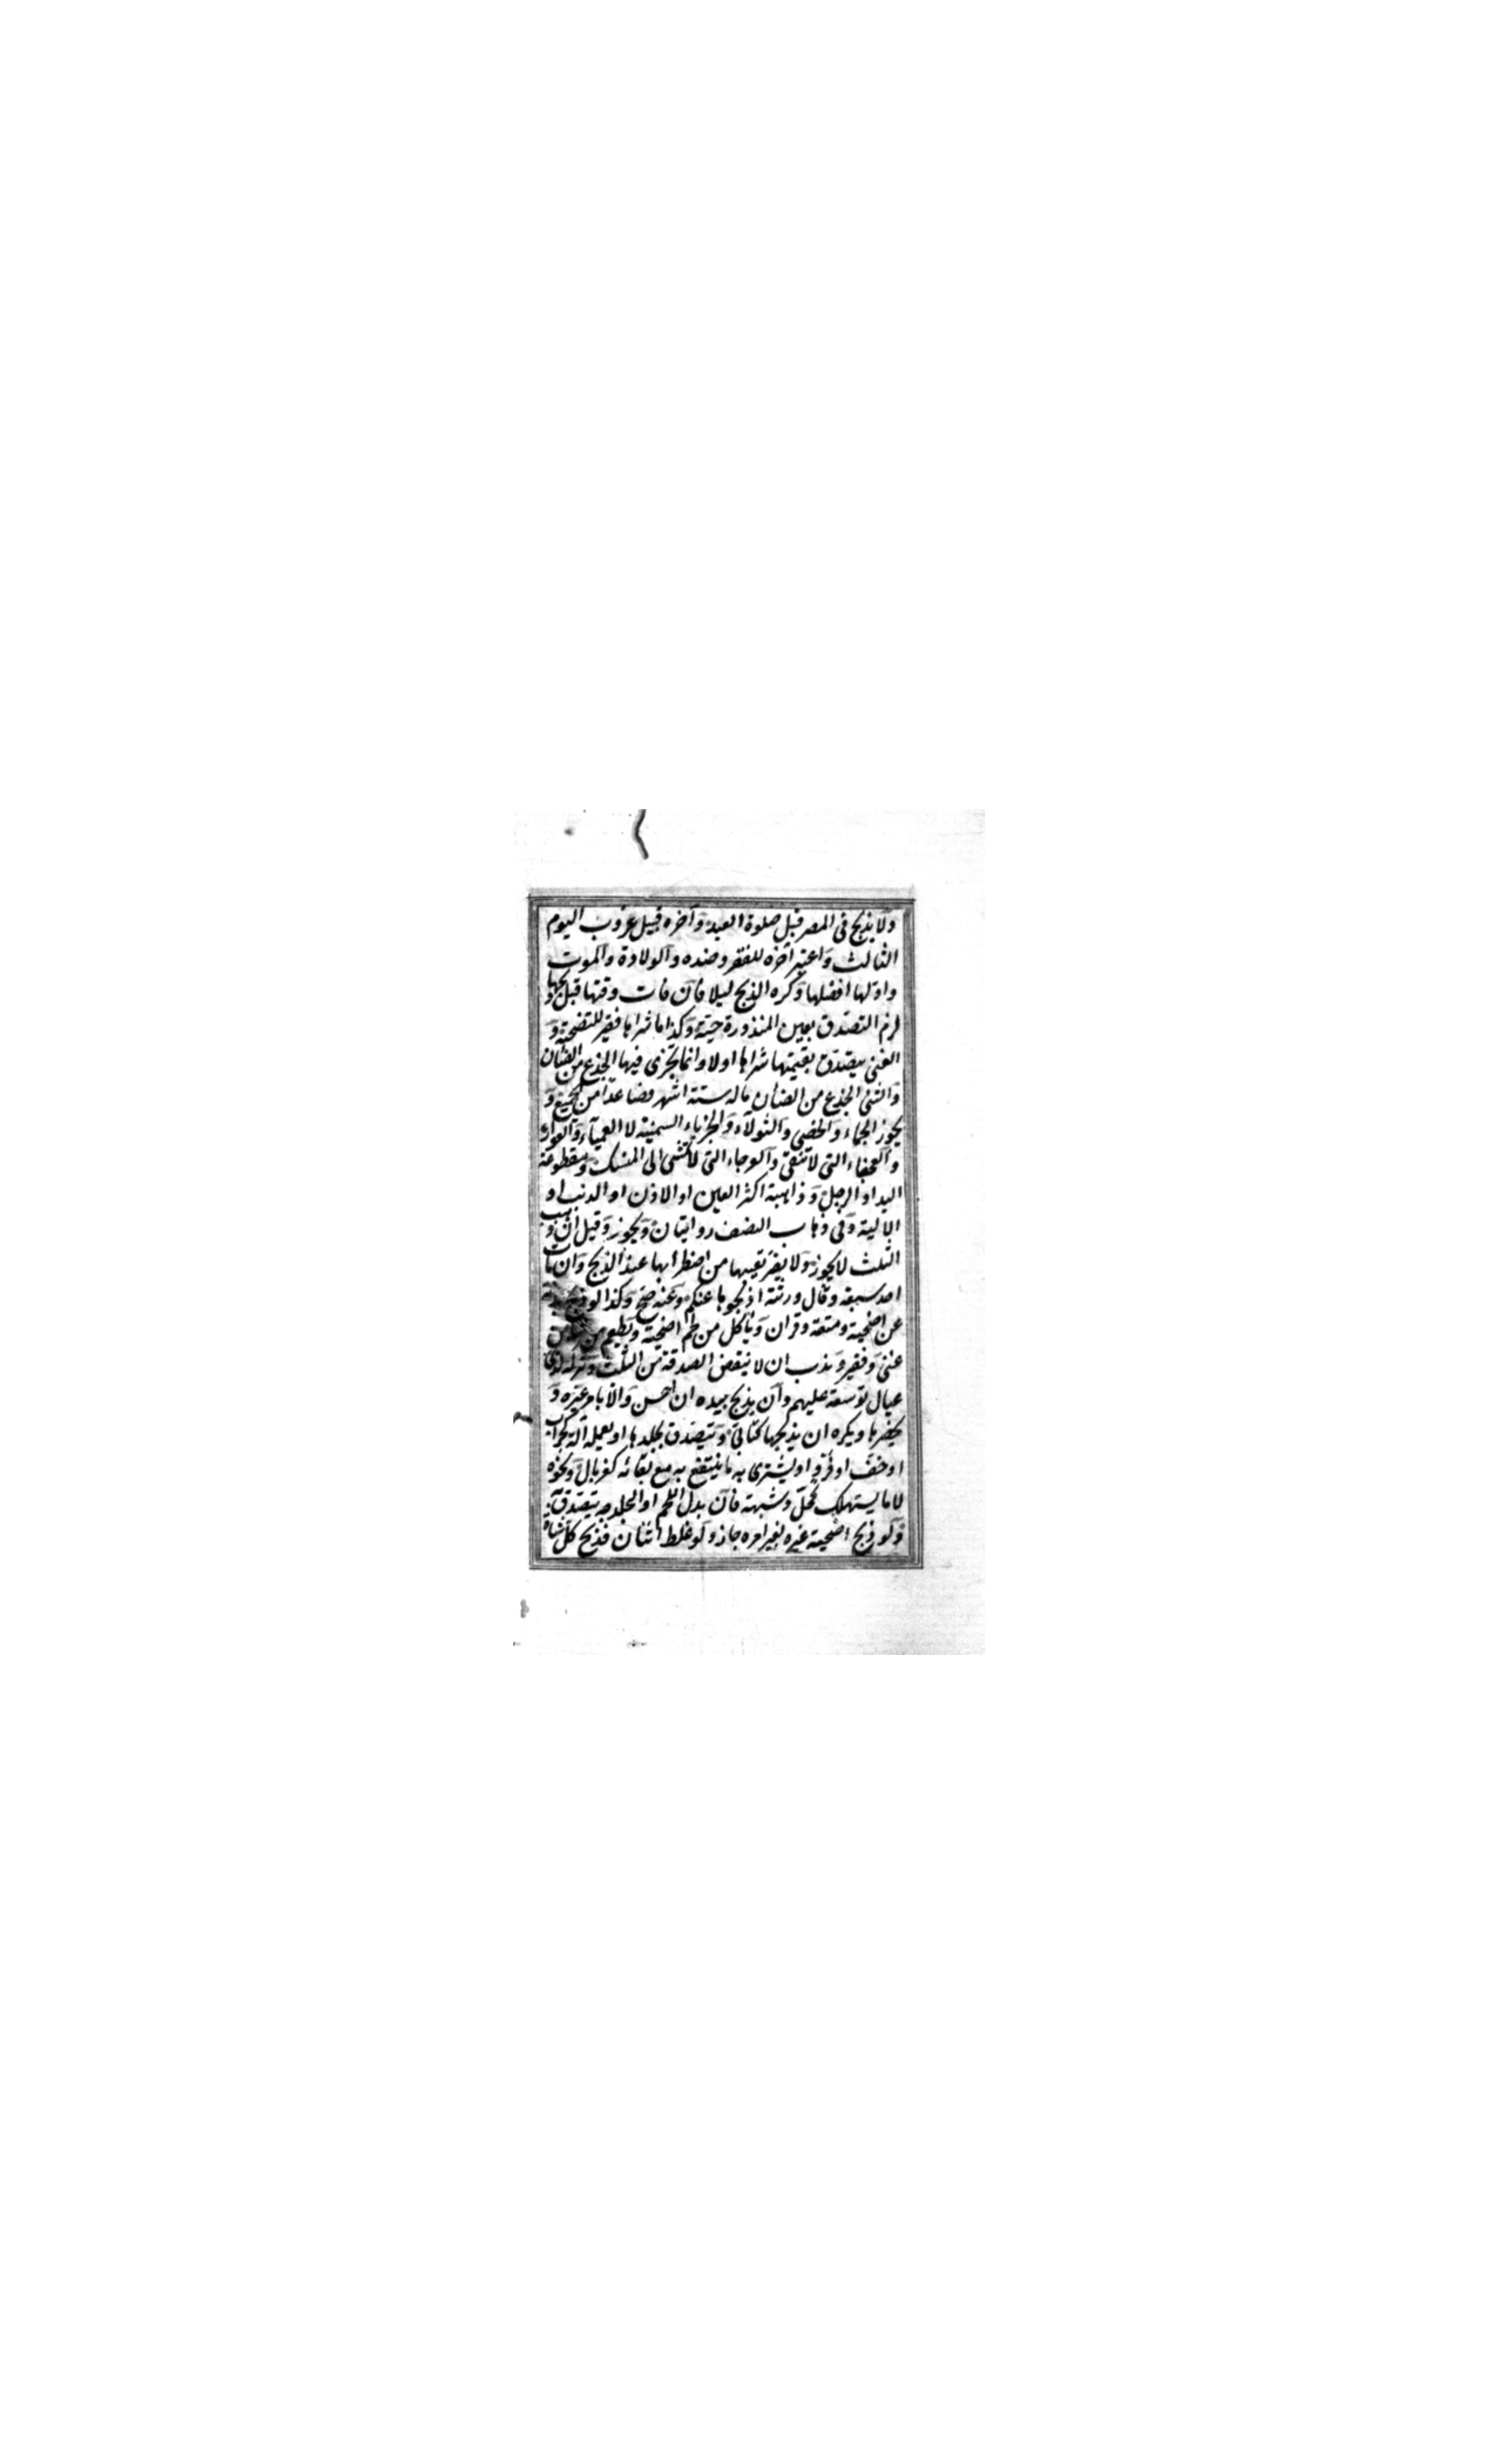 ولا يذبح في المصر قبل صلوة العيد وآخره قبيل غروب اليوم
الثالث واعتبر آخره للفقر وضده والولادة والموت
واولها افضلها وكره الذبح ليلا فان فات وقتها قبل ذبحها
لزم التصدق بعين المنذورة حية وكذا ما شراها فقير للتضحية و
الغني يتصدق بقيمتها شراها اولا وانما تجزئ فيها الجذع من الضأن
والثني الجذع من الضأن ماله ستة اشهر فصاعدا من الجميع و
يجوز الجماء والخصي والثولاء والجرباء السمينة لا العمياء والعوراء
والعجفاء التي لا تنقي والعرجاء التي لا تمشي الى المنسك ومقطوعة
اليد او الرجل وذاهبة اكثر العين او الاذن او الذنب او
الالية وفي ذهاب النصف روايتان ويجوز وقيل ان ذهب
الثلث لا يجوز ولا يضر تعيبها من اضطرابها عند الذبح وان مات
احد سبعة وقال ورثته اذبحوها عنكم وعنه صح وكذا لو ذبح
عن اضحية ومتعة وقران ويأكل من لحم اضحية ويطعم من شاء من
غني وفقير وندب ان لا ينقص الصدقة من الثلث وتركه لذي
عيال توسعة عليهم وان يذبح بيده ان احسن والا يامر غيره و
يحضرها ويكره ان يذبحها كتابي ويتصدق بجلدها او يعمله آلة كجراب
او خف او فرو او يشتري به ما ينتفع به مع بقائه كغربال ونحوه
لا ما يستهلك كخل وشبهه فان بدل اللحم او الجلد به يتصدق به
ولو ذبح اضحية غيره بغير امره جاز ولو غلط اثنان فذبح كل شاة